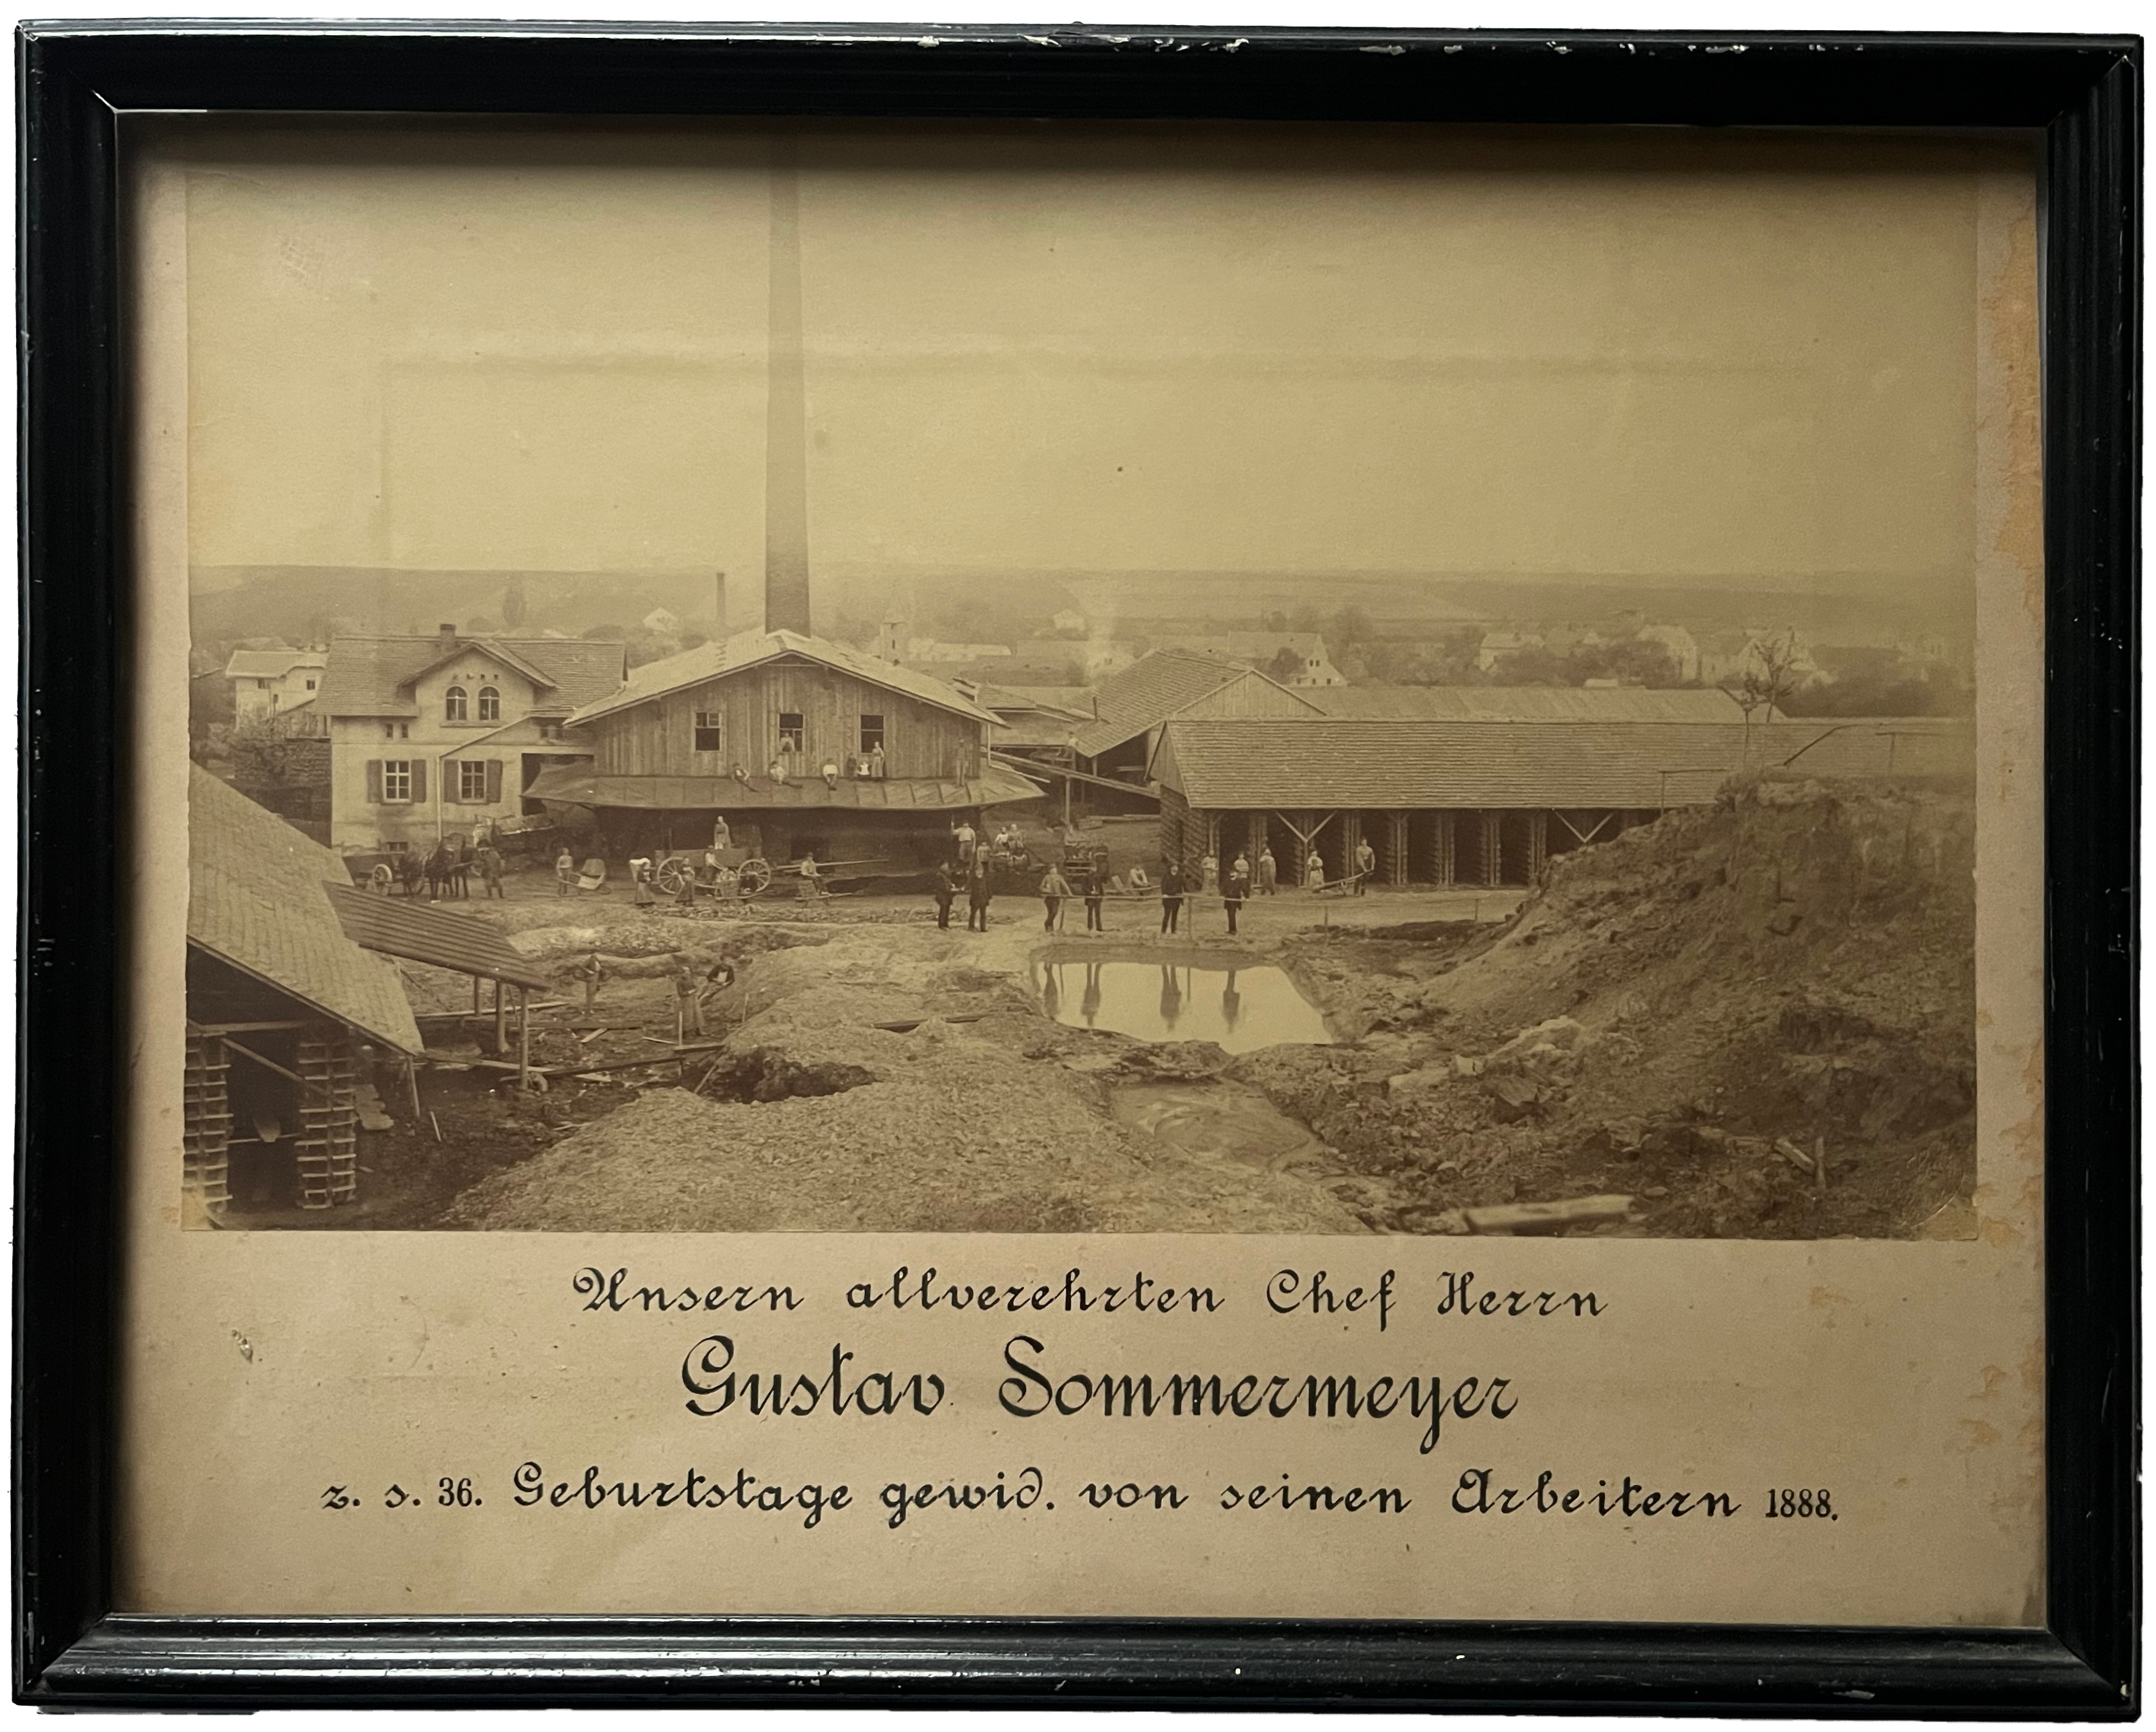 Unsern allverehrten Chef Herrn
Gustav Sommermeyer
z. s. 36. Geburtstage gewid. von seinen Arbeitern 1888.